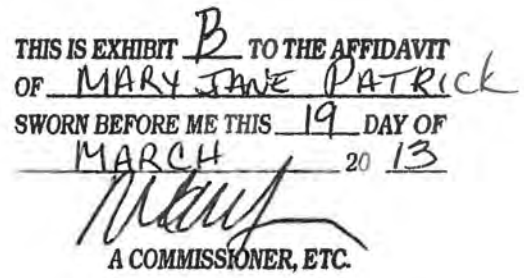 THIS IS EXHIBIT B TO THE AFFIDAVIT
OF MARY JANE PATRICK
SWORN BEFORE ME THIS 19 DAY OF
MARCH 20 13
A COMMISSIONER, ETC.